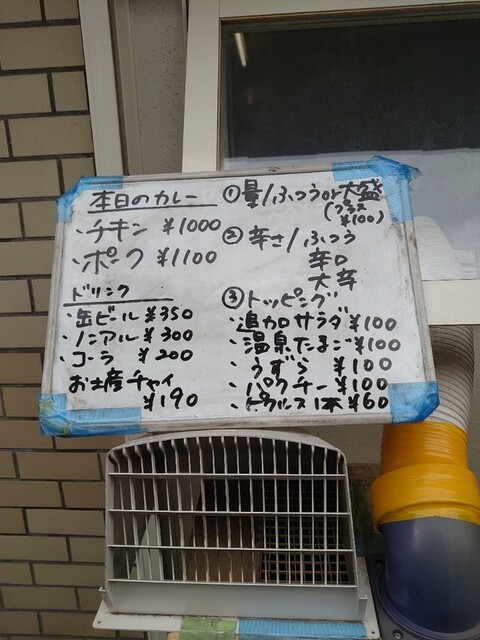 本日のカレー
・チキン ¥1000
・ポーク ¥1100
ドリンク
・缶ビール ¥350
・ノンアル ¥300
・コーラ ¥200
お土産チャイ
¥190
①量/ふつうor大盛
(プラス
¥100)
②辛さ/ふつう
辛口
大辛
③トッピング
・追加サラダ ¥100
・温泉たまご ¥100
・うずら ¥100
・パクチー ¥100
・ピクルス1本 ¥60